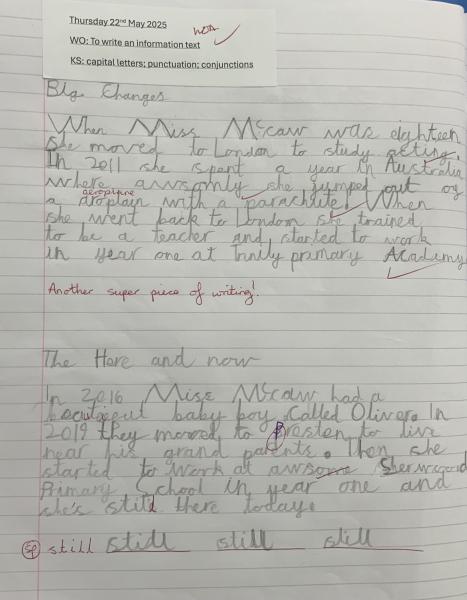 Thursday 22nd May 2025
WO: To write an information text
KS: capital letters; punctuation; conjunctions
Big Changes
When Miss McCaw was eighteen
she moved to London to study acting.
In 2011 she spent a year in Australia
where awsomly she jumped out of
aeroplane
a with a parachute! When
she went back to London she trained
to be a teacher and started to work
in year one at trinity primary Academy
Another super piece of writing!
The Here and now
In 2016 Miss McCaw had a
baby boy Called Oliver. In
2019 they moved to Preston to live
near his grand parents. Then she
started to work at awsome Sherwood
Primary School in year one and
she's still there today.
sp still still still still